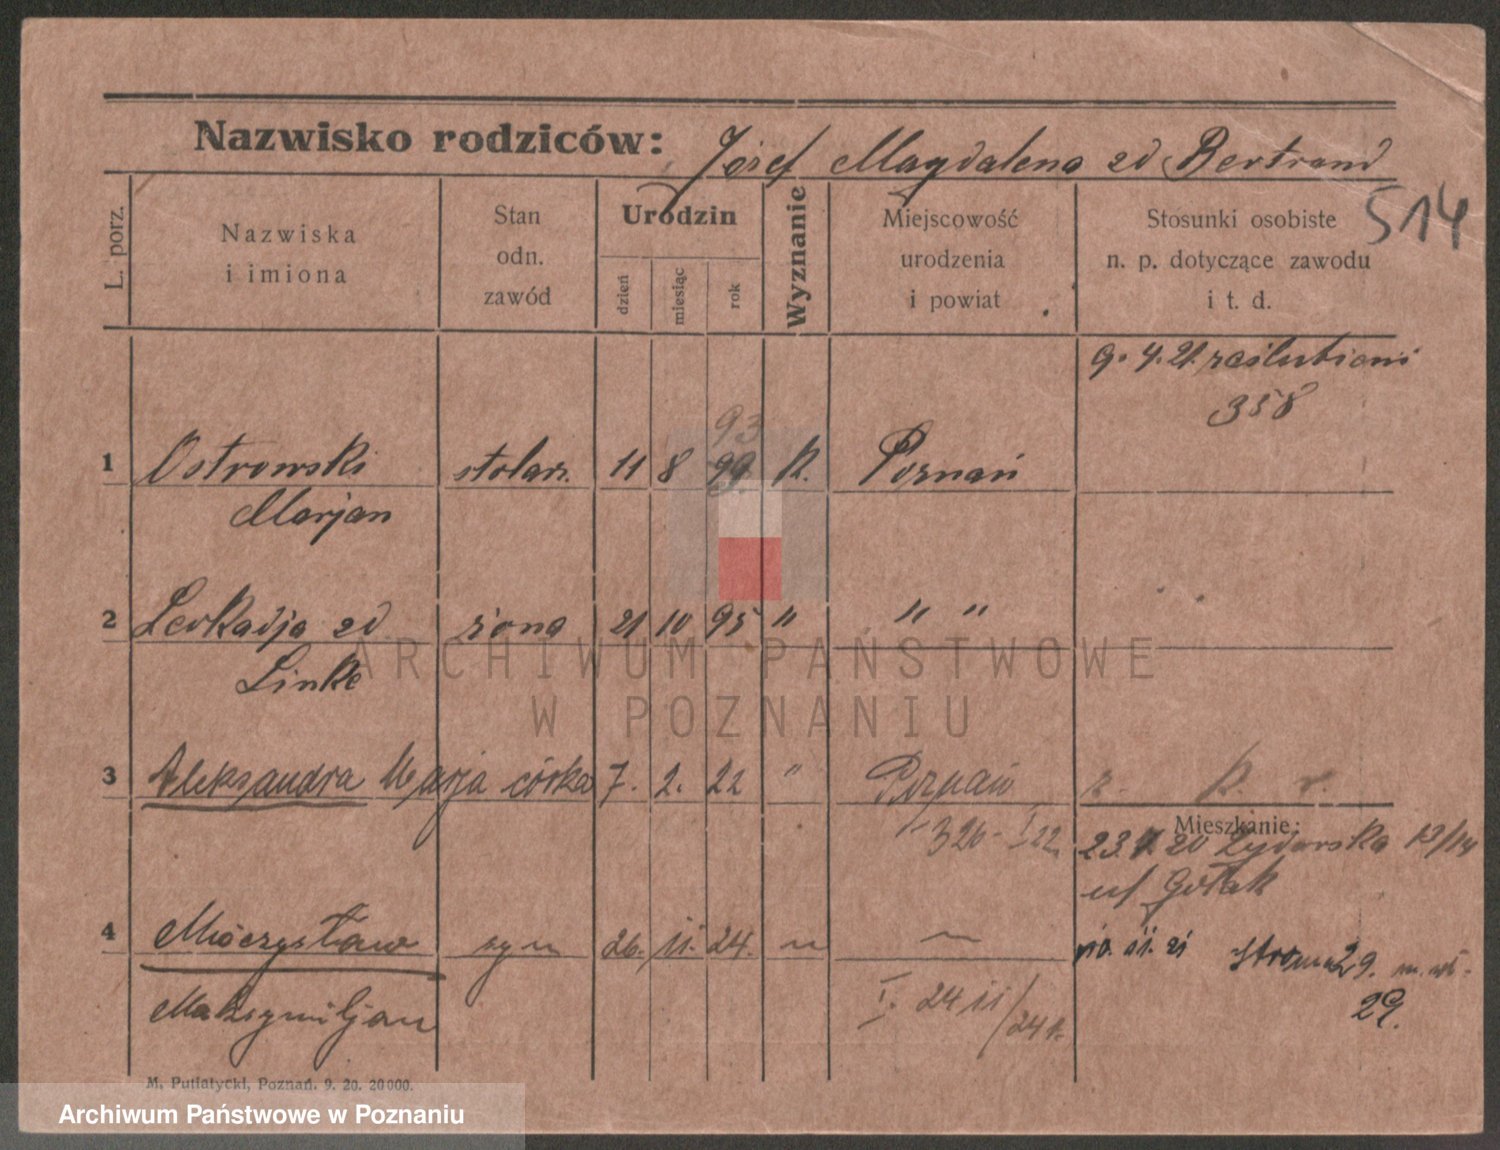 Nazwisko rodziców: Józef Magdalena zd Bertrand
514
L. porz.
Nazwiska
i imiona
Stan
odn.
zawód
Urodzin
dzień
miesiąc
rok
Wyznanie
Miejscowość
urodzenia
i powiat
Stosunki osobiste
n. p. dotyczące zawodu
i t. d.
9. 4. 21.
358
93
1 Ostrowski stolarz. 11 8 99. k. Poznań
Marjan
2 Leokadja zd żona 21 10 95 " " "
Linke
3 Aleksandra Marja córka 7. 2. 22 " Poznań
326 - I 22
Mieszkanie:
20 Żydowska 13/14
Gołak
4 Mieczysław syn 26. 11. 24. 
29.
Maksymiljan
29.
M. Putiatycki, Poznań. 9. 20. 20000.
ARCHIWUM PAŃSTWOWE
W POZNANIU
Archiwum Państwowe w Poznaniu